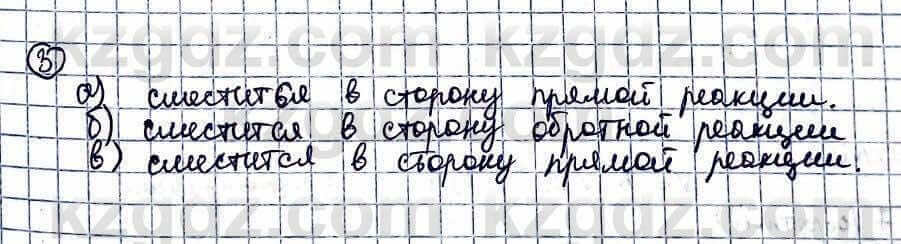 3
а) сместиться в сторону прямой реакции.
б) сместится в сторону обратной реакции
в) сместится в сторону прямой реакции.
kzgdz.com